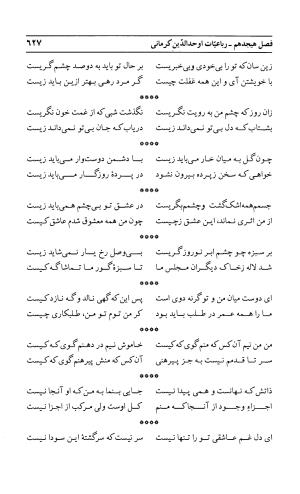 فصل هیجدهم ـ رباعیّات اوحدالدّین کرمانی ۶۲۷
زین سان که تو را بی‌خودی وبی‌خبریست بر حال تو باید به دوصد چشم گریست
با خویشتن آی و این همه غفلت چیست گر مرد رهی بهتر ازین باید زیست
****
زان روز که چشم من به رویت نگریست نگذشت شبی که از غمت خون نگریست
بشتاب که دل بی‌تو نمی‌داند زیست دریاب که جان بی‌تو نمی‌داند زیست
****
چون گل به میان خار می‌باید زیست با دشمن دوست‌وار می‌باید زیست
خواهی که سخن زپرده بیرون نشود در پردهٔ روزگار می‌باید زیست
****
جسمم همه اشک گشت وچشمم بگریست در عشق تو بی‌چشم همی‌باید زیست
از من اثری نماند، این عشق زچیست چون من همه معشوق شدم عاشق کیست
****
بر سبزه چو چشم ابر نوروز گریست بی‌وصل رخ یار نمی‌شاید زیست
شد لاله زخاک دیگران مجلس ما تا سبزهٔ گور ما تماشاگه کیست
****
ای دوست میان من و تو گرنه دوی است پس این که گهی نالد و گه نازد کیست
ما را همه عمر در طلب باید بود کر من توم تو من، طلبکاری چیست
****
من من نیم آن کس که منم گوی که کیست خاموش نیم در دهنم گوی که کیست
سر تا قدمم نیست به جز پیرهنی آن کس که منش پیرهنم گوی که کیست
****
ذاتش که نهانست و همی پیدا نیست جایی بنما به من که او آنجا نیست
اجزاء وجود از آنجا که منم کل اوست ولی مرکب از اجزا نیست
****
ای دل غم عاشقی تو را تنها نیست سر نیست که سرگشتهٔ این سودا نیست